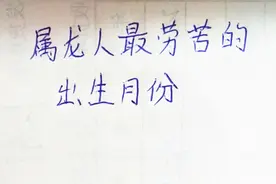 属龙人最劳苦的
出生月份